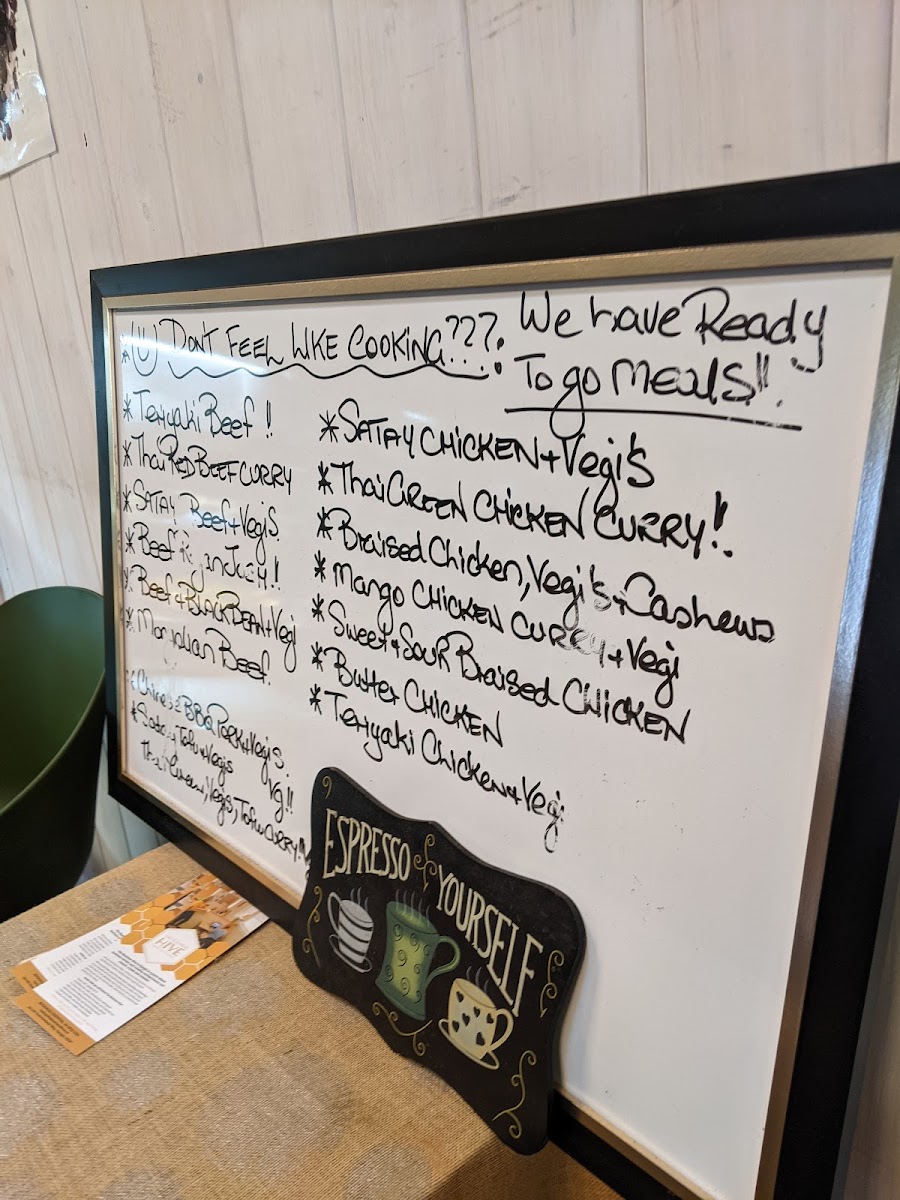 *(U) DON'T FEEL LIKE COOKING???:
We have Ready
To go Meals!!
* Teriyaki Beef!!
* Thai RED BEEF CURRY
* SATAY Beef+Vegi's
* Beef
* Beef+BLACK BEAN+Vegi
* Mongolian Beef
* Chinese BBQ PORK+Vegi's.
* Satay Tofu+Vegis Vg!!
Thai Green, Vegis, Tofu CURRY!!
* SATAY CHICKEN+Vegi's
* Thai GREEN CHICKEN CURRY!!
* Braised Chicken, Vegi's+Cashews
* Mango CHICKEN CURRY+Vegi
* Sweet+SOUR Braised CHICKEN
* Butter CHICKEN
* Teriyaki Chicken+Vegi
ESPRESSO
YOURSELF
HIVE